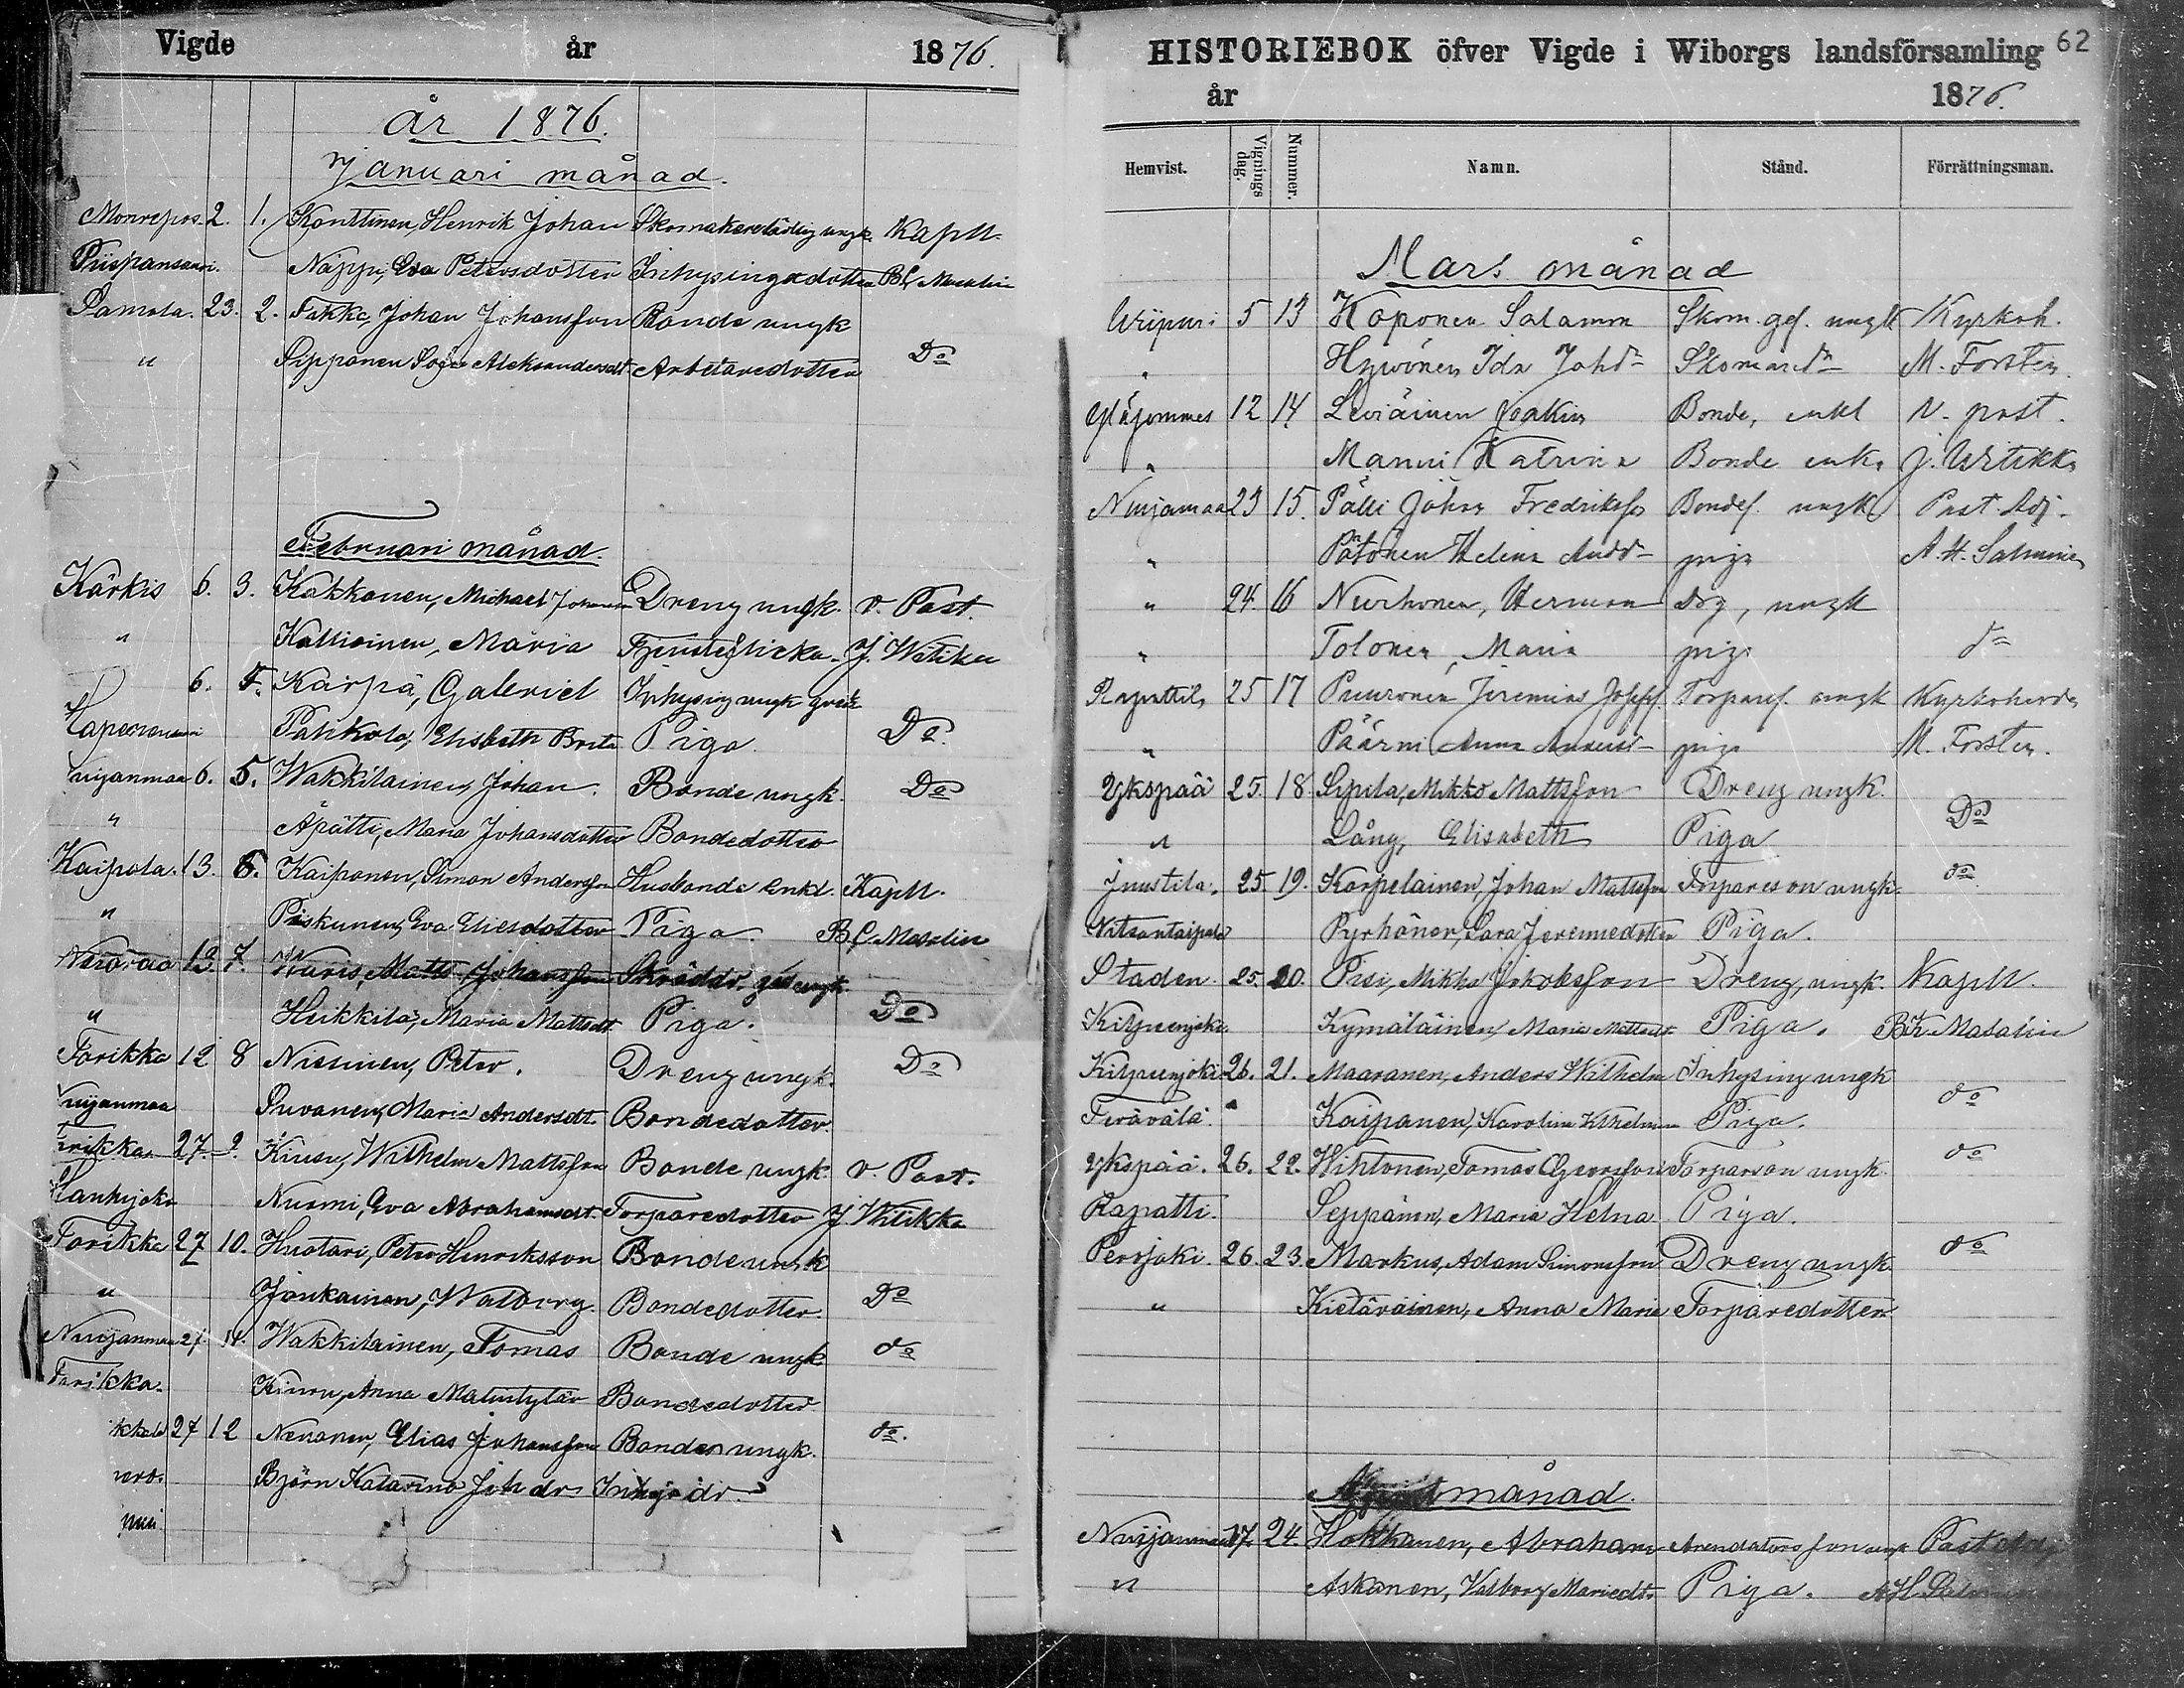 Vigde år 1876.
år 1876.
januari månad.
Monrepos. 2. 1. Konttinen, Henrik Johan Skomakerelärling ungk. Kapll.
Piispansaari. Näppi, Eva Petersdotter Inhysingedotter B.C. Masalin
Samola. 23. 2. Takka, Johan Johansson Bonde ungk
" Sipponen Sofia Aleksandersdt. Arbetaredotter Do
Februari månad.
Kärkis 6. 3. Kakkonen, Michael Johansson Dreng ungk. v. Past.
" Kallioinen, Maria Tjensteflicka J. Witikka
6. 4. Kärpä, Gabriel Inhysing ungk
Haperonsaari Pahkola, Elisbeth Brita Piga Do.
Nuijanmaa 6. 5. Wakkilainen, Johan. Bonde ungk. Do
" Äpätti, Maria Johansdotter Bondedotter
Kaipola. 13. 6. Kaiponen, Simon Andersson Husbonde Enkl. Kapll.
" Piskunen, Eva Eliesdotter Piga. B.C. Masalin
12. 7. Wuris, Matts Johansson Skräddr. ges. ungk.
" Heikkilä, Maria Mattsdt. Piga. Do
Tarikka 12 8 Nissinen, Peter. Dreng ungk. Do
Nuijanmaa Suvanen, Maria Andersdt. Bondedotter.
Tarikka 27. 9. Kiuru, Wilhelm Mattsson Bonde ungk. v. Past.
Hanhijoki Nurmi, Eva Abrahamsdt. Torparedotter J. Witikka
Tarikka 27 10. Huotari, Peter Henriksson Bonde ungk
" Jonkainen, Walborg Bondedotter. Do
Nuijanmaa 27. 11. Wakkilainen, Tomas Bonde ungk do
Tarikka. Kiuru, Anna Matintytär Bondedotter
kkala 27 12 Nenonen, Elias Johansson Bonde ungk. do.
Björn Katarina Joh dr Inhys dr.
HISTORIEBOK öfver Vigde i Wiborgs landsförsamling 62
år 1876.
Hemvist. Vignings dag. Nummer. Namn. Stånd. Förrättningsman.
Mars månad
Wiipuri 5 13 Koponen Salamon Skom. ges. ungk Kyrkoh.
" Hyvönen Ida Johdr Skomar.dr M. Forsten.
Yläsommes 12 14 Leviäinen Joakim Bonde, enkl v. past.
" Manni Katrina Bonde enka J. Witikka
Nuijamaa 23 15. Pälli Johan Fredriksson Bondes. ungk Past. Adj.
" Pätönen Helena Anddr piga A. H. Salminen
" 24. 16 Nuuhonen, Herman Drg, ungk
" Tolonen, Maria piga do
Rapattila 25 17 Puuronen Jeremias Josefss. Torpares. ungk Kyrkoherde
" Päärni Anna piga M. Forsten.
Ykspää 25. 18 Sipila, Mikko Mattsson Dreng ungk.
" Lång, Elisabeth Piga Do
Juustila. 25. 19. Karpelainen, Johan Mattsson Torpareson ungk. do
Nitsantaipale Pyrhönen, Sara Jeremiedotter Piga.
Staden. 25. 20. Pisi, Mikko Jakobsson Dreng, ungk. Kapll.
Kilpeenjoki Kymäläinen, Maria Mattsdt. Piga. B.C. Masalin
Kilpeenjoki 26. 21. Maaranen, Anders Wilhelm Inhysing ungk
Terävälä. Kaipanen, Karolina Wilhelmina Piga. do
Ykspää. 26. 22. Wihtonen, Tomas Georgsson Torparson ungk. do
Rapatti. Seppänen, Maria Helna Piga.
Perojoki. 26. 23. Markus, Adam Simonsson Dreng ungk. do
" Kietäväinen, Anna Maria Torparedotter
April månad.
Nuijanmaa 17. 24. Hokkanen, Abraham Arendatorsson ungk Past Adj
" Askanen, Valborg Mariedtr Piga. A H Salminen